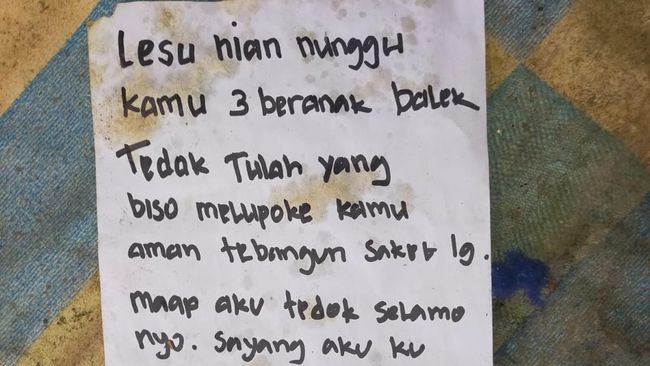 Lesu nian nunggu
kamu 3 beranak balek
Tedak Tulah yang
biso melupoke kamu
aman tebangun saket lg.
maap aku tedok selamo
nyo. sayang aku ku